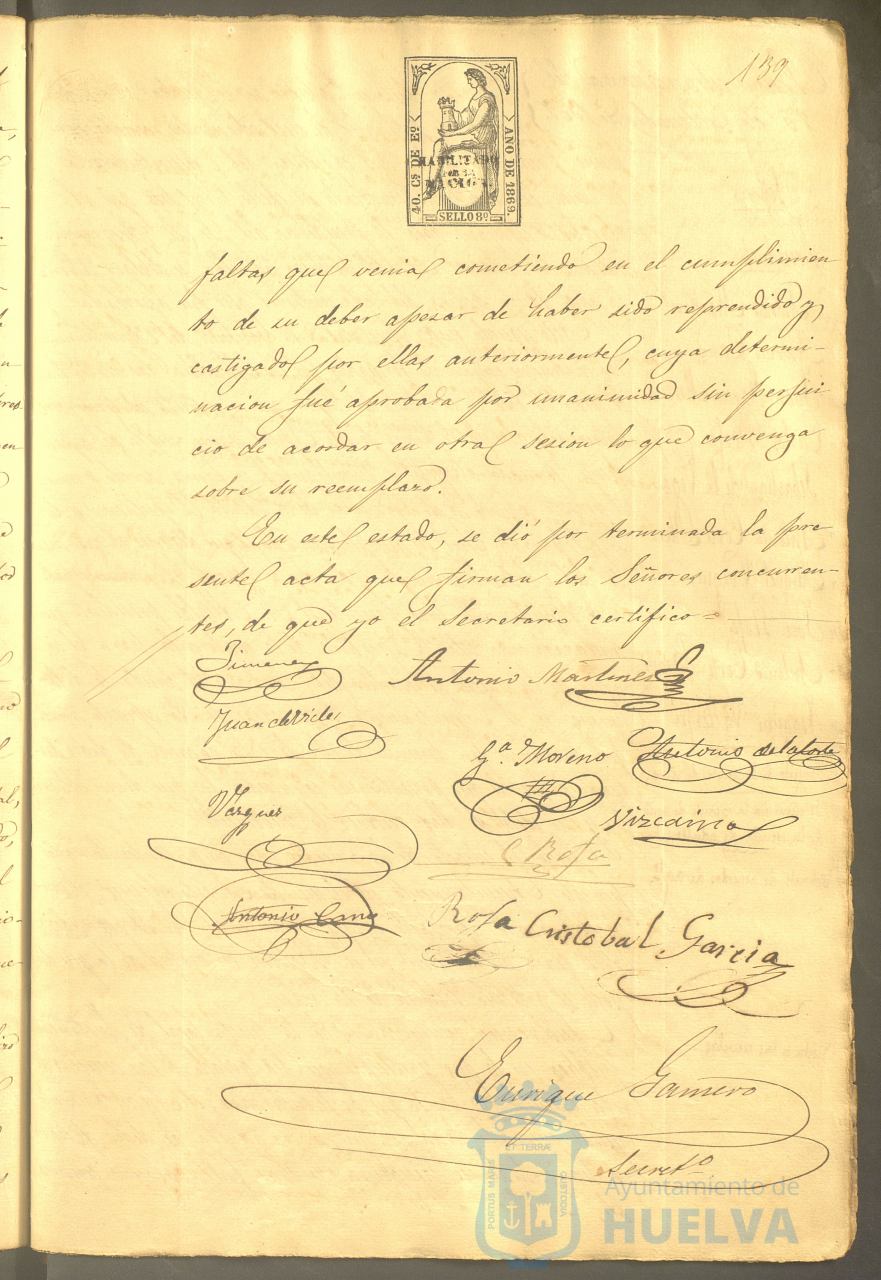 139
40. Cs DE Eo.
AÑO DE 1869.
HABILITADO
POR LA
NACION.
SELLO 8º
faltas que venia cometiendo en el cumplimien-
to de su deber apesar de haber sido reprendido y
castigado por ellas anteriormente, cuya determi-
nacion fué aprobada por unanimidad sin perjui-
cio de acordar en otra sesion lo que convenga
sobre su reemplazo.
En este estado, se dió por terminada la pre-
sente acta que firman los Señores concurren-
tes, de que yo el Secretario certifico=
Jimenez
Antonio Martines
Juan de Vides
Gª. Moreno
Antonio de la Corte
Vazquez
Vizcaino
C Rosa
Antonio Cano
Rosa
Cristobal Garcia
Enrique Gamero
Secretº
PORTUS MARIS ET TERRÆ CUSTODIA
Ayuntamiento de
HUELVA